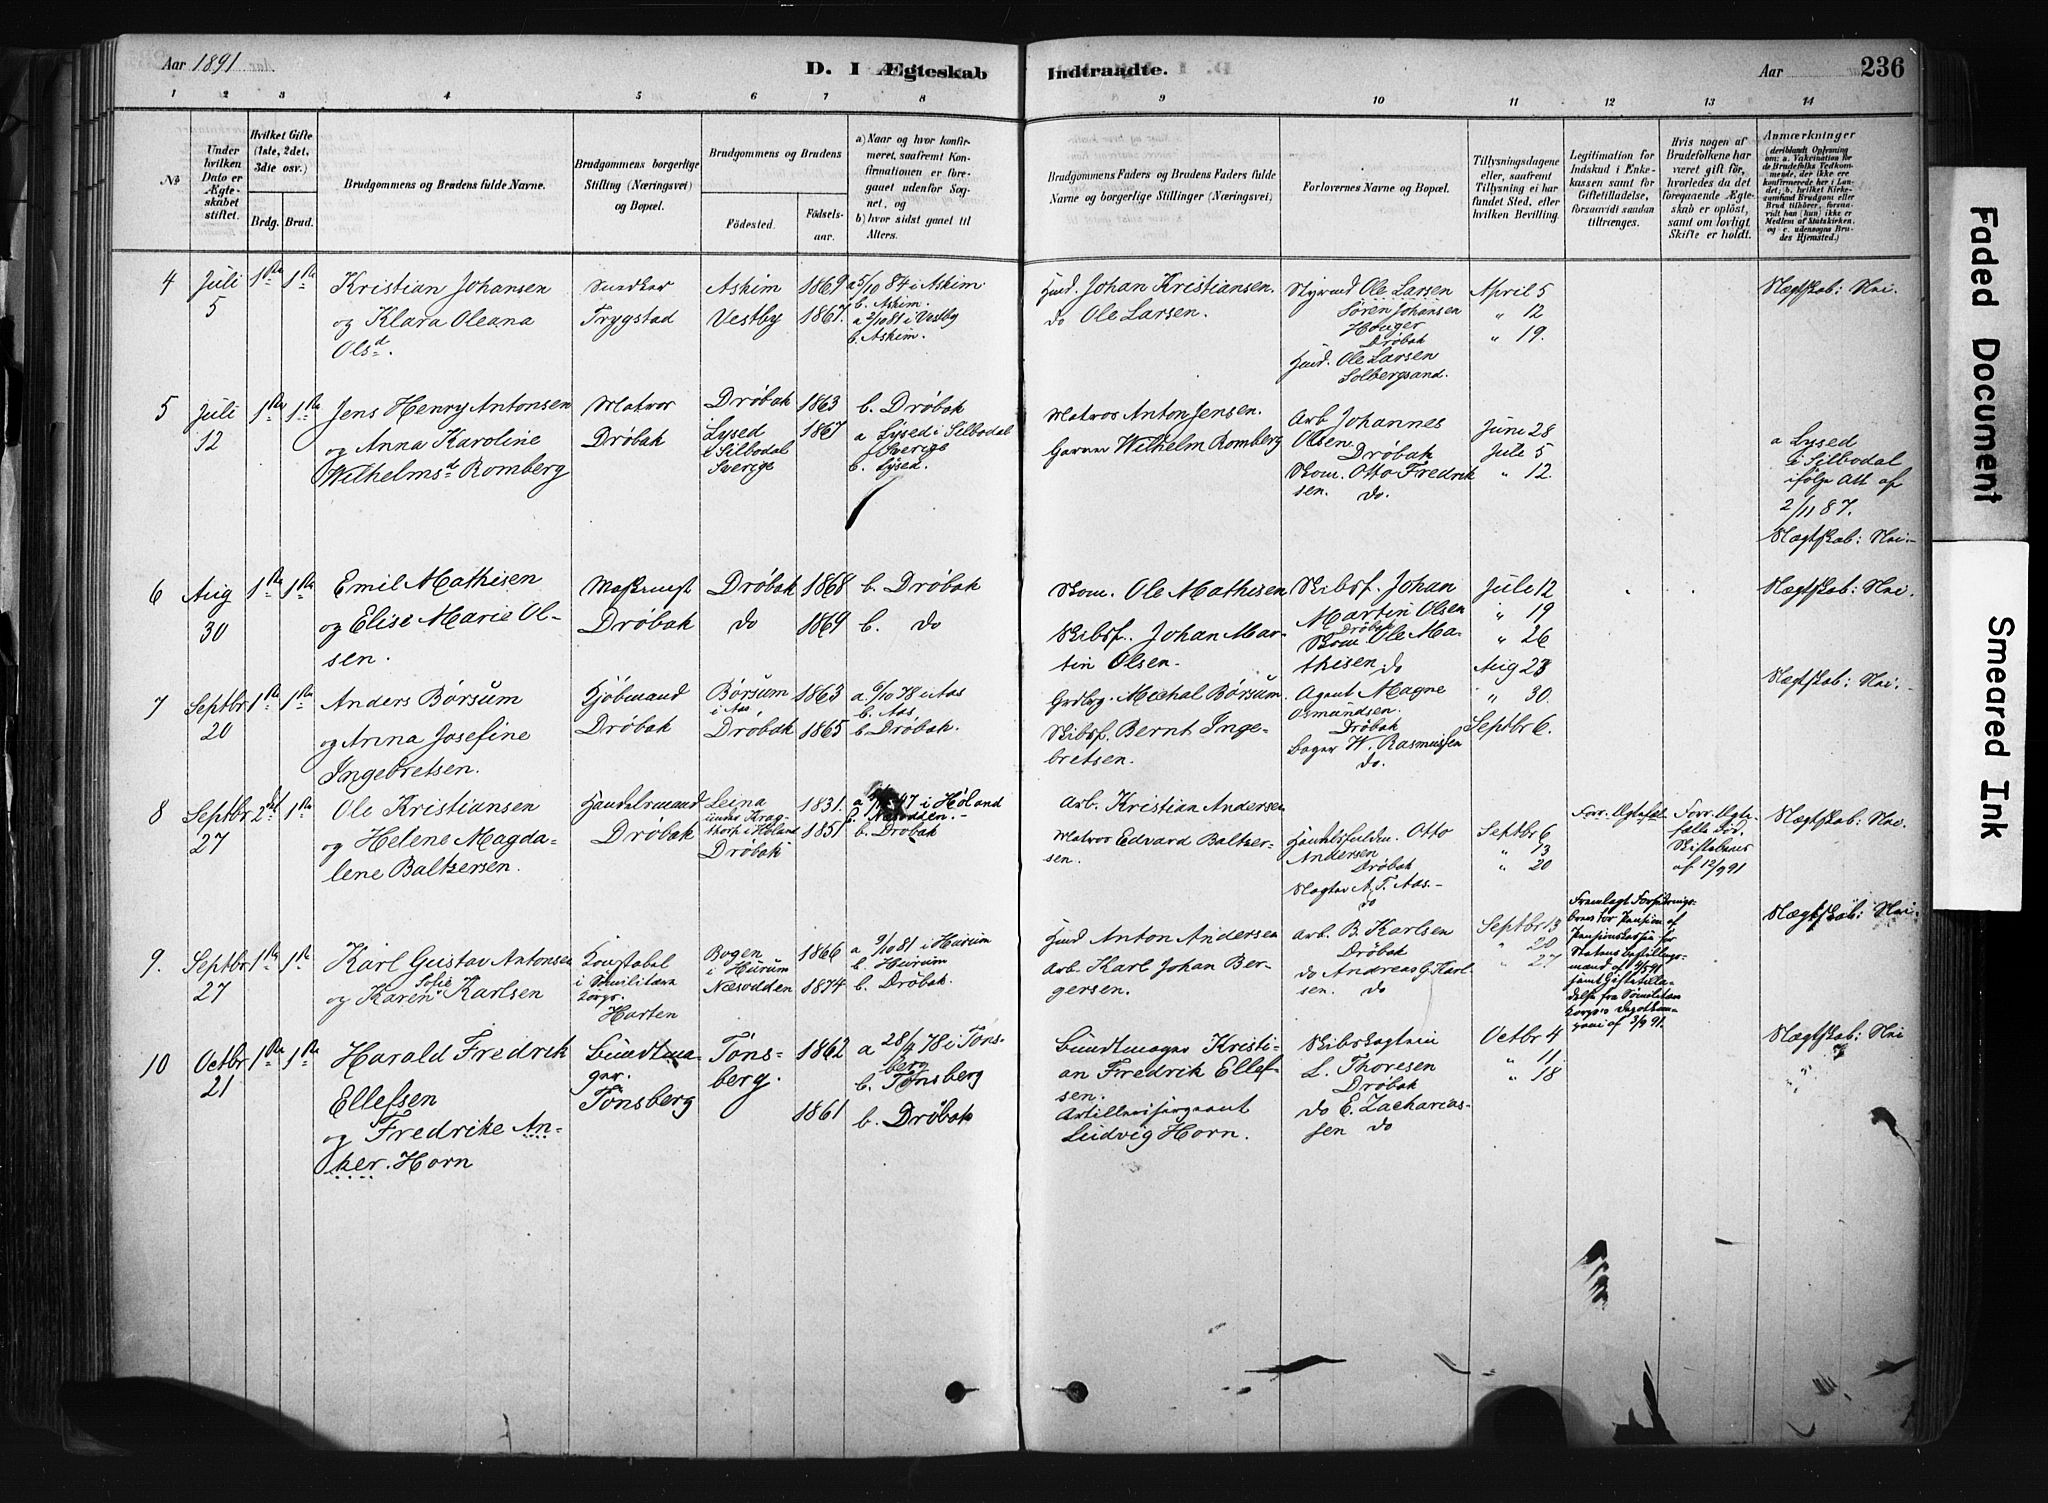 Aar 1891
D. I Ægteskab
Indtraadte.
Aar
236
1 2 3 4 5 6 7 8 9 10 11 12 13 14
№
Under hvilken Dato er Ægteskabet stiftet.
Hvilket Gifte (1ste, 2det, 3die osv.)
Brdg. Brud.
Brudgommens og Brudens fulde Navne.
Brudgommens borgerlige Stilling (Næringsvei) og Bopæl.
Brudgommens og Brudens
Födested.
Födselsaar.
a) Naar og hvor konfirmeret, saafremt Konfirmationen er foregaaet udenfor Sognet, og
b) hvor sidst gaaet til Alters.
Brudgommens Faders og Brudens Faders fulde Navne og borgerlige Stillinger (Næringsvei)
Forlovernes Navne og Bopæl.
Tillysningsdagene eller, saafremt Tillysning ei har fundet Sted, efter hvilken Bevilling.
Legitimation for Indskud i Enkekassen samt for Giftetilladelse, forsaavidt saadan tiltrænges.
Hvis nogen af Brudefolkene har været gift för, hvorledes da det foregaaende Ægteskab er oplöst, samt om lovligt Skifte er holdt.
Anmærkninger
4 Juli 5 1ste 1ste
Kristian Johansen
og Klara Oleana
Olsd.
Snedker
Trygstad
Askim 1869
Vestby 1867
a 5/10 84 i Askim
b. Askim.
a 2/10 81 i Vestby
b. Askim.
Husd. Johan Kristiansen.
do Ole Larsen.
Styrmd Ole Larsen
Sören Johansen
Drøbak
Husd. Ole Larsen
Solbergsand.
April 5
" 12
" 19.
Slægtskab: Nei.
5 Juli 12 1ste 1ste
Jens Henry Antonsen
og Anna Karoline
Wilhelmsd Romberg
Matros
Drøbak
Drøbak 1863
Lysed i Silbodal Sverige 1867
b. Drøbak
a Lysed i Silbodal
Sverige
b. Lysed.
Matros Anton Jensen.
Wilhelm Romberg
Arb Johannes
Olsen
Drøbak
Skom. Otto Fredrik
sen. do.
Juni 28
Juli 5
" 12.
a Lysed
i Silbodal
ifølge Att af
2/11 87.
Slægtskab: Nei.
6 Aug 30 1ste 1ste
Emil Mathisen
og Elise Marie Ol-
sen.
Maskinist
Drøbak
Drøbak 1868
do 1869
b. Drøbak
b. do
Skom. Ole Mathisen
Skibsf. Johan Mar-
tin Olsen.
Skibsf. Johan
Martin Olsen
Drøbak
Skom Ole Ma-
thisen do
Juli 12
" 19
" 26
Slægtskab: Nei.
7 Septbr 20 1ste 1ste
Anders Børsum
og Anna Josefine
Ingebretsen.
Kjøbmand
Drøbak
Børsum i Aas 1863
Drøbak 1865
a. 6/10 78 i Aas
b. Aas
b. Drøbak.
Grdbrg. Michal Børsum
Skibsf. Bernt Inge-
bretsen.
Agent Magne
Osmundsen.
Drøbak
Bager W. Rasmussen
do.
Aug 23
" 30.
Septbr 6.
Slægtskab: Nei.
8 Septbr 27 2det 1ste
Ole Kristiansen
og Helene Magda-
lene Baltzersen.
Handelsmand
Drøbak
1831.
Drøbak 1851
47 i Høland
b. Næsodden.
b. Drøbak
Arb. Kristian Andersen
Matros Edvard Baltzer-
sen.
Otto
Andersen
Drøbak
A. T. Aas.
do
Septbr 6
" 13
" 20
Forr. Ægtefæl
Forr. Ægte-
fælle død.
af 12/9 91
Slægtskab: Nei.
9. Septbr 27 1ste 1ste
Karl Gustav Antonsen
og Karen Sofie Karlsen
Konstabel
i Sömilitære
Korps.
Horten
Bogen i Hurum 1866
Næsodden 1874
a 9/10 81 i Hurum
b. Hurum
b. Drøbak.
Husd Anton Andersen
Arb. Karl Johan Ber-
gersen.
Arb. B. Karlsen
Drøbak
do Andreas G. Karl
sen. do
Septbr 13
" 20
" 27
Slægtskab: Nei.
10 Octbr 21 1ste 1ste
Harald Fredrik
Ellefsen
og Fredrike An-
ker. Horn
Bundtma-
ger.
Tönsberg
Töns-
berg.
1862
1861
a 28/4 78 i Töns-
berg
b. Tönsberg
b. Drøbak
Bundtmager Kristi-
an Fredrik Ellef-
sen.
Artillerisergeant
Ludvig Horn.
Skibskaptein
L. Thoresen
Drøbak
do E. Zacharias-
sen do
Octbr 4
" 11
" 18
Slægtskab: Nei
Faded Document
Smeared Ink